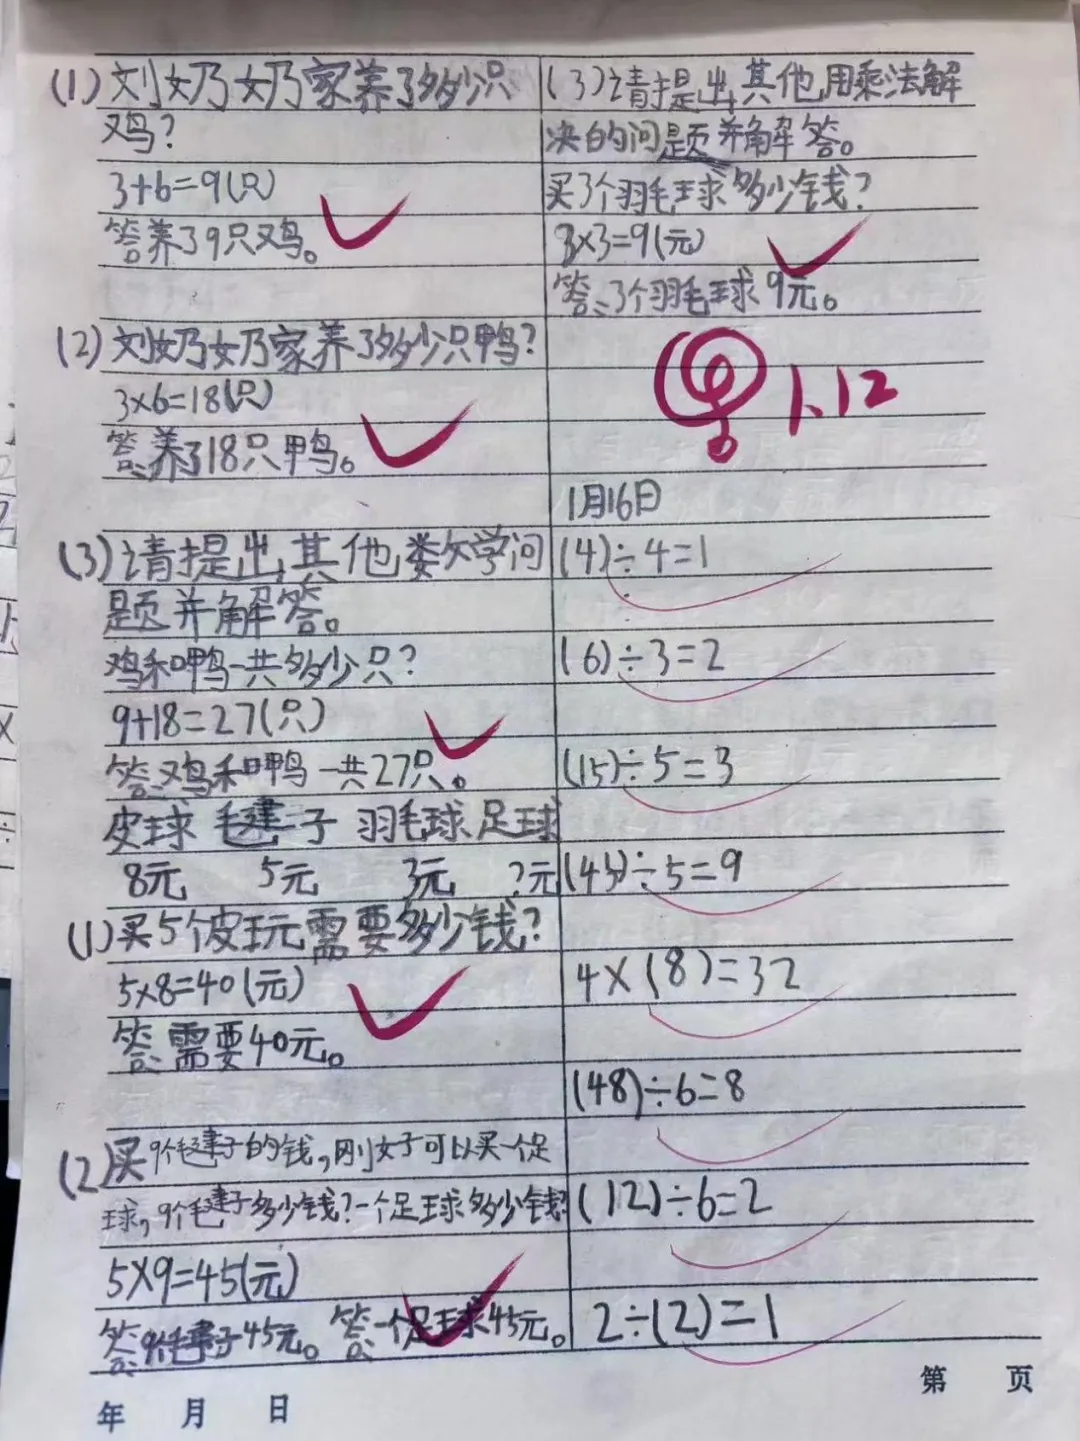 (1)刘奶奶家养了多少只
鸡?
3+6=9(只)
答养了9只鸡。
(2)刘奶奶家养了多少只鸭?
3×6=18(只)
答:养了18只鸭。
(3)请提出其他数学问
题并解答。
鸡和鸭一共多少只?
9+18=27(只)
答:鸡和鸭一共27只。
皮球 毽子 羽毛球 足球
8元 5元 3元 ?元
(1)买5个皮玩需要多少钱?
5×8=40(元)
答:需要40元。
(2)买9个毽子的钱,刚好可以买一个足
球,9个毽子多少钱?一个足球多少钱?
5×9=45(元)
答:9个毽子45元。答:一个足球45元。
年 月 日
(3)请提出其他用乘法解
决的问题并解答。
买3个羽毛球多少钱?
3×3=9(元)
答:3个羽毛球9元。
1.12
1月16日
(4)÷4=1
(6)÷3=2
(15)÷5=3
(45)÷5=9
4×(8)=32
(48)÷6=8
(12)÷6=2
2÷(2)=1
第 页